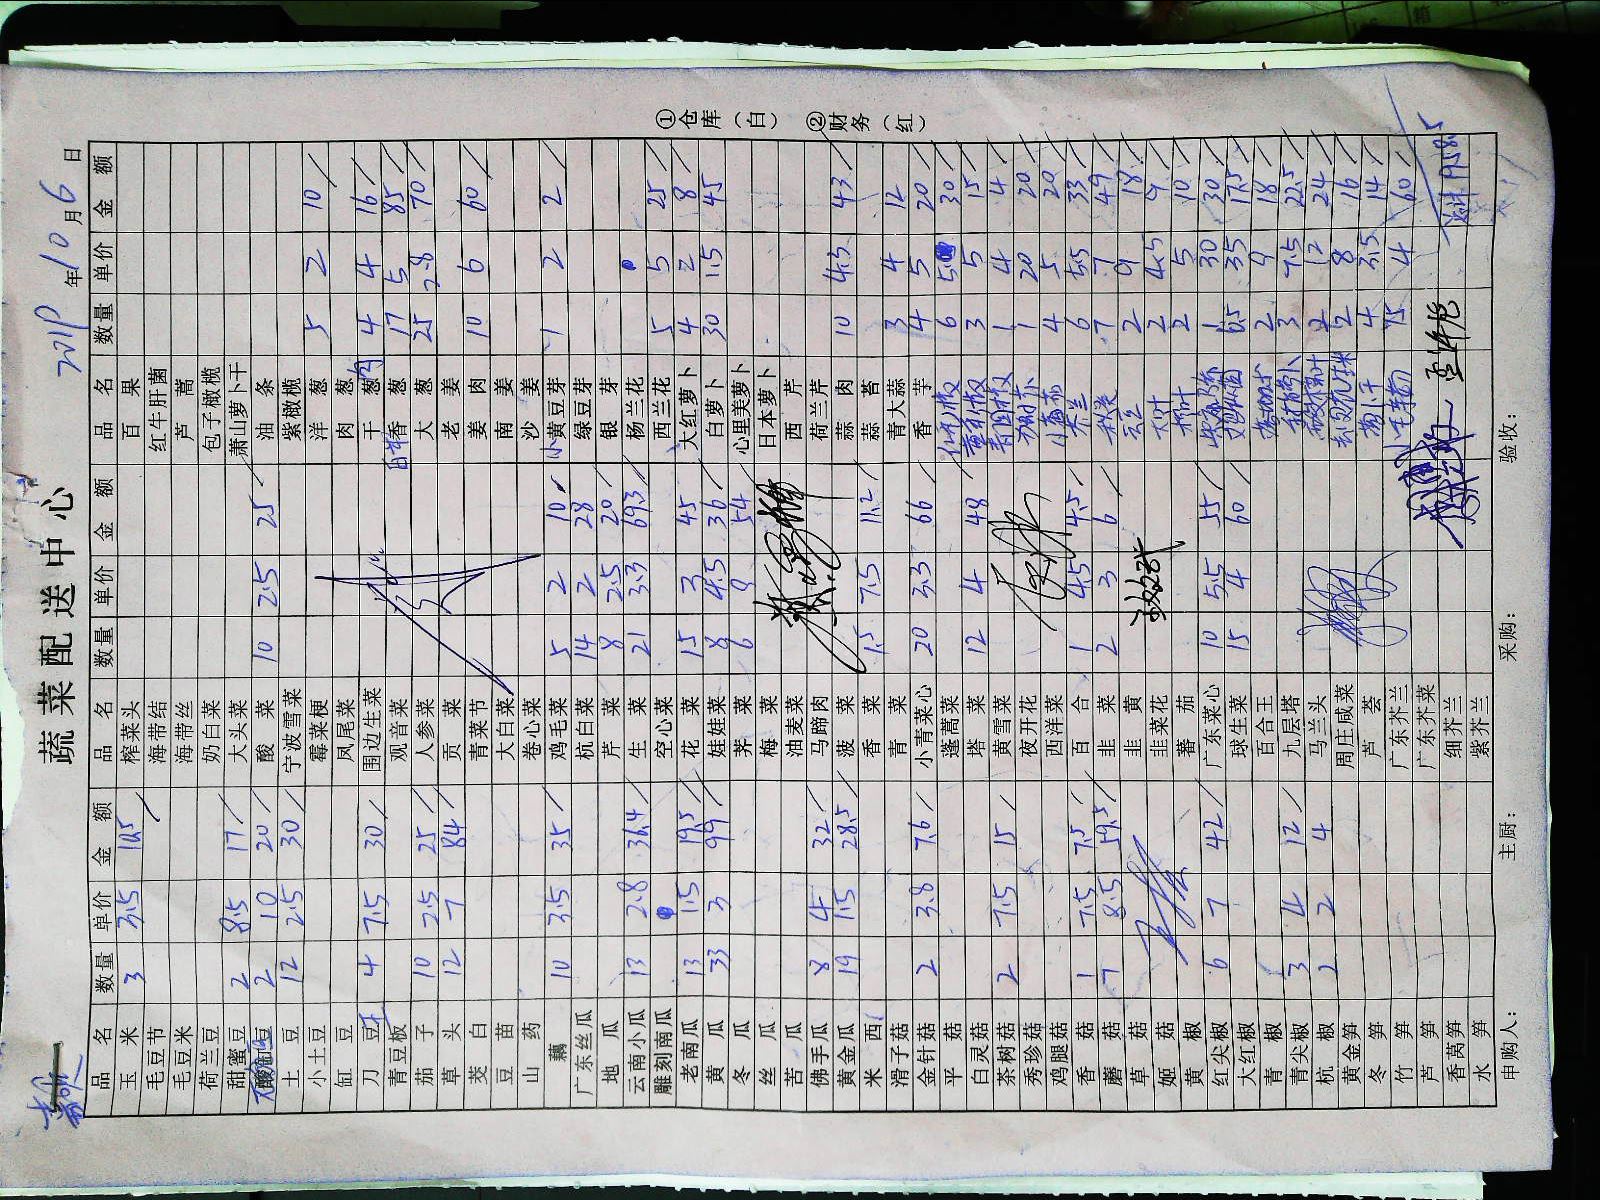 蔬菜配送中心
2019年10月6日
品名 数量 单价 金额 品名 数量 单价 金额 品名 数量 单价 金额
玉米 3 3.5 10.5 榨菜头 百果
毛豆节 海带结 红牛肝菌
毛豆米 海带丝 芦蒿
荷兰豆 奶白菜 包子橄榄
甜蜜豆 2 8.5 17 大头菜 萧山萝卜干
2 10 20 酸菜 10 2.5 25 油条
土豆 12 2.5 30 宁波雪菜 紫橄榄
小土豆 霉菜梗 洋葱 5 2 10
缸豆 凤尾菜 肉葱
刀豆 4 7.5 30 围边生菜 干葱肉 4 4 16
青豆板 观音菜 香葱 17 5 85
茄子 10 2.5 25 人参菜 大葱 25 2.8 70
草头 12 7 84 贡菜 老姜
茭白 青菜节 姜肉 10 6 60
豆苗 大白菜 南姜
山药 卷心菜 沙姜
藕 10 3.5 35 鸡毛菜 5 2 10 小黄豆芽 1 2 2
广东丝瓜 杭白菜 14 2 28 绿豆芽
地瓜 芹菜 8 2.5 20 银芽
云南小瓜 13 2.8 36.4 生菜 21 3.3 69.3 杨兰花
雕刻南瓜 空心菜 西兰花 5 5 25
老南瓜 13 1.5 19.5 花菜 15 3 45 大红萝卜 4 2 8
黄瓜 33 3 99 娃娃菜 8 4.5 36 白萝卜 30 1.5 45
冬瓜 荠菜 6 9 54 心里美萝卜
丝瓜 梅菜 日本萝卜
苦瓜 油麦菜 西芹
佛手瓜 8 4 32 马蹄肉 荷兰芹
黄金瓜 19 1.5 28.5 菠菜 蒜肉 10 4.3 43
米西 香菜 1.5 7.5 11.2 蒜苔
滑子菇 青菜 青大蒜 3 4 12
金针菇 2 3.8 7.6 小青菜心 20 3.3 66 香芋 4 5 20
平菇 蓬蒿菜 6 5 30
白灵菇 塔菜 12 4 48 3 5 15
茶树菇 2 7.5 15 黄雪菜 1 4 4
秀珍菇 夜开花 1 20 20
鸡腿菇 西洋菜 4 5 20
香菇 1 7.5 7.5 百合 1 4.5 4.5 6 5.5 33
蘑菇 7 8.5 59.5 韭菜 2 3 6 7 7 49
草菇 韭黄 2 9 18
姬菇 韭菜花 2 4.5 9
黄椒 蕃茄 2 5 10
红尖椒 6 7 42 广东菜心 10 5.5 55 1 30 30
大红椒 球生菜 15 4 60
青椒 百合王 2 9 18
青尖椒 3 4 12 九层塔 3 7.5 22.5
杭椒 2 2 4 马兰头 2 12 24
黄金笋 周庄咸菜 2 8 16
冬笋 芦荟 萝卜干 4 3.5 14
竹笋 广东芥兰 15 4 60
芦笋 广东芥菜
香莴笋 细芥兰
水笋 紫芥兰
申购人： 主厨： 采购： 验收：
①仓库（白） ②财务（红）